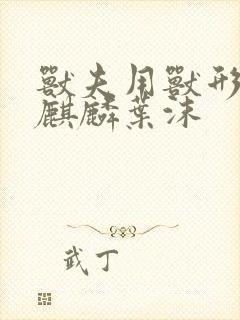 獸夫用獸形
麒麟葉沫
武丁